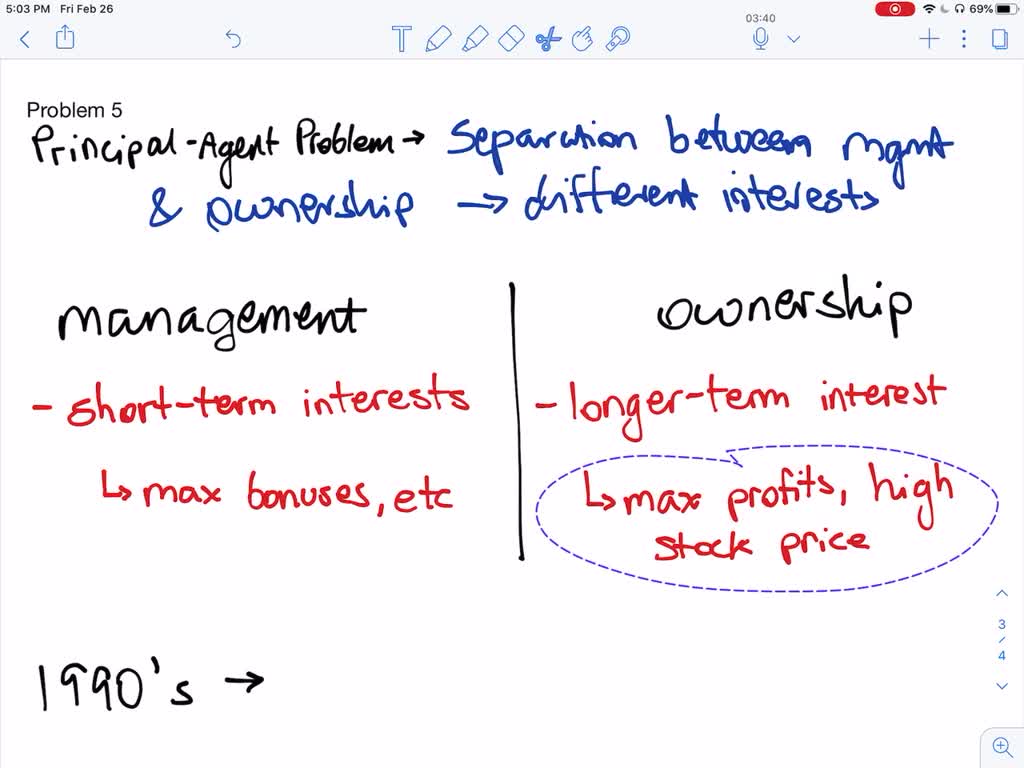 5:03 PM Fri Feb 26
69%
03:40
Problem 5
Principal-Agent Problem → Separation between mgmt
& ownership → different interests
management
ownership
- short-term interests
- longer-term interest
↳ max bonuses, etc
↳ max profits, high
stock price
3
/
4
1990's →